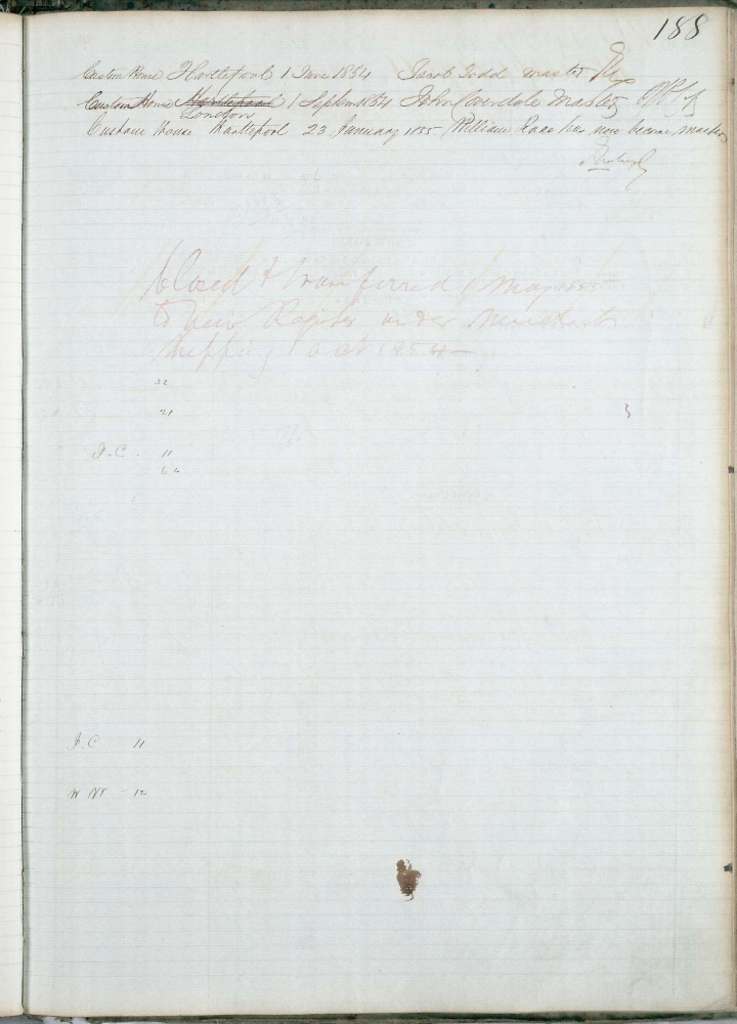 188
Custom House Hartlepool 1 June 1854 Jacob Todd master
Custom House Hartlepool 1 Septem 1854 John Coverdale Master
London
Custom House Hartlepool 23 January 1855 William has now become master
Closed & transferred
to new Register under Merchant
Shipping Act 1854
32
21
J. C. 11
64
J. C 11
W W 12